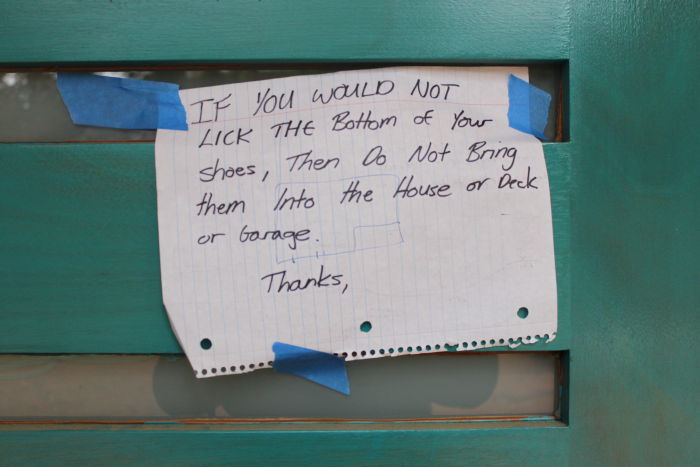 IF YOU WOULD NOT
LICK THE Bottom of Your
shoes, Then Do Not Bring
them Into the House or Deck
or Garage.
Thanks,